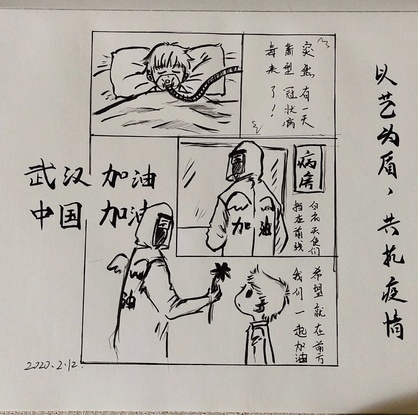 以艺为盾，共抗疫情
突然有一天
新型冠状病
毒来了！
病房
白衣天使们
在前线
加油
武汉 加油
中国 加油
油
希望就在前方
我们一起加油
2020.2.12.